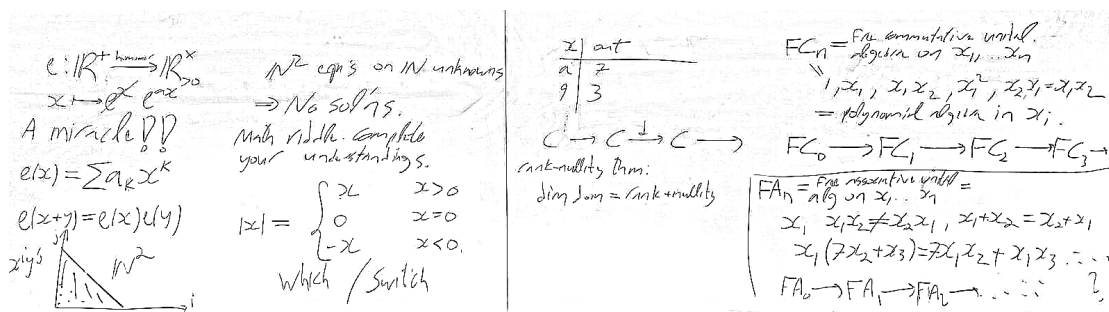 e: ℝ⁺ → ℝ^×_{>0}
x ↦ e^x e^{ax}
A miracle!!
e(x) = ∑ a_k x^k
e(x+y) = e(x)e(y)
x^i y^j's
ℕ²
i
ℕ² eqn's on ℕ unknowns
⇒ No sol'ns.
Math riddle. Complete
your understandings.
|x| = { x x>0
0 x=0
-x x<0.
Which / Switch
x | out
a | 7
9 | 3
C → C →^d C →
rank-nullity thm:
dim dom = rank + nullity
FC_n = Free commutative unital
algebra on x_1, … x_n
1, x_1, x_1 x_2, x_1², x_2 x_1 = x_1 x_2
= polynomial algebra in x_i.
FC_0 → FC_1 → FC_2 → FC_3 →
FA_n = Free associative unital =
alg on x_1 … x_n
x_1 x_1x_2 ≠ x_2x_1, x_1+x_2 = x_2+x_1
x_1(7x_2+x_3) = 7x_1x_2 + x_1x_3 …
FA_0 → FA_1 → FA_2 → …